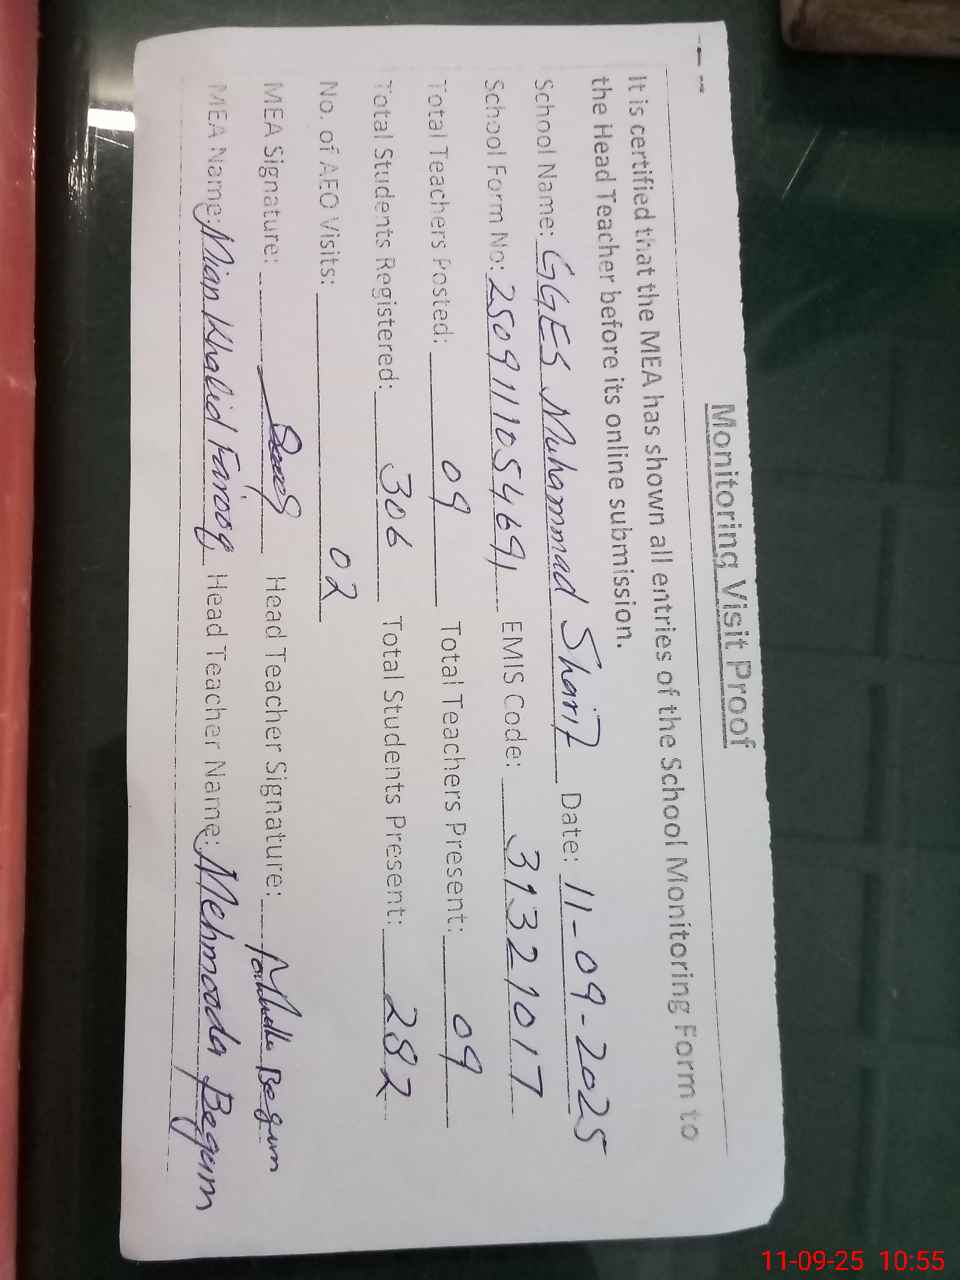 Monitoring Visit Proof
It is certified that the MEA has shown all entries of the School Monitoring Form to
the Head Teacher before its online submission.
School Name: GGES Muhammad Sharif Date: 11-09-2025
School Form No: 2509111054691 EMIS Code: 31321017
Total Teachers Posted: 09 Total Teachers Present: 09
Total Students Registered: 306 Total Students Present: 282
No. of AEO Visits: 02
MEA Signature: Head Teacher Signature: Begum
MEA Name: Mian Khalid Farooq Head Teacher Name: Mehmooda Begum
11-09-25 10:55